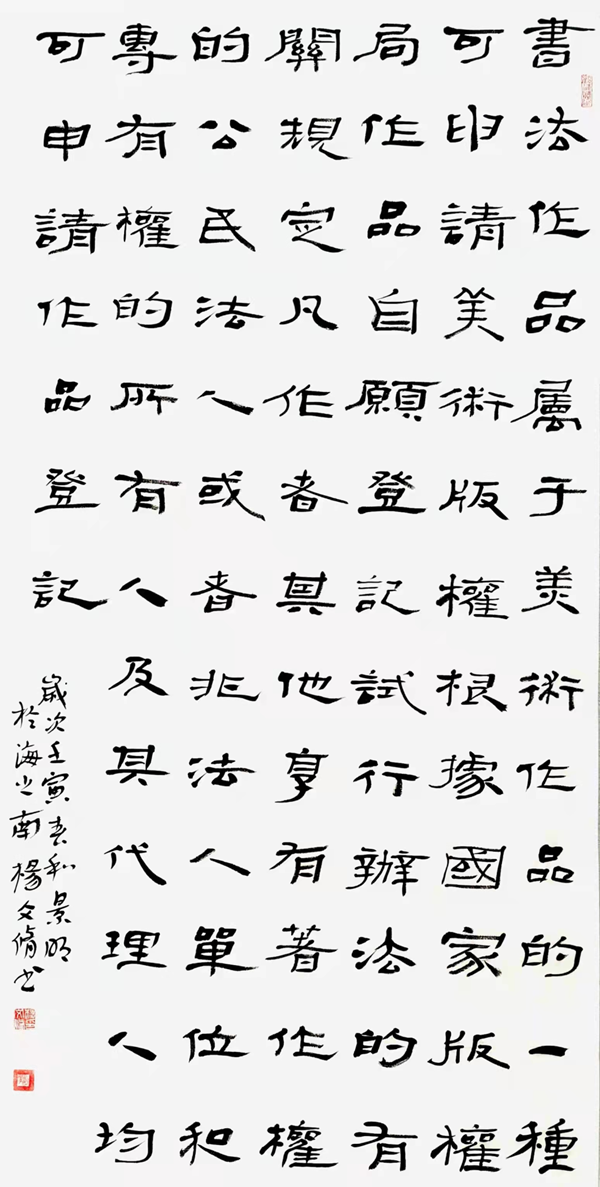 書法作品属于美術作品的一種
可申請美術版權根據國家版權
局作品自願登記試行辦法的有
關規定凡作者其他享有著作權
的公民法人或者非法人單位和
專有權的所有人及其代理人均
可申請作品登記
歲次壬寅春和景明
於海之南楊文脩书